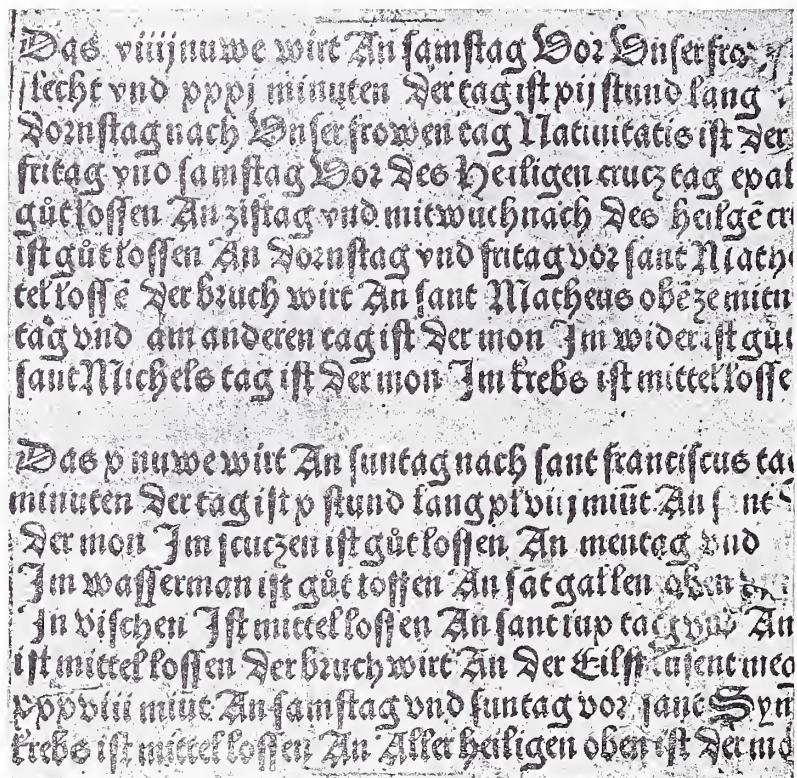 Das viiij nuwe wirt An samstag Vor Vnser fro
slecht vnd xxxj minuten Der tag ist xij stund lang
Dornstag nach Vnser frowen tag Natiuitatis ist Der
fritag vnd samstag Vor Des Heiligen crucz tag epal
gůt lossen An zistag vnd mitwuch nach Des heilgē cr
ist gůt lossen An Dornstag vnd fritag vor sant Math
tel lossē Der bruch wirt An sant Matheus obē ze mitn
tag vnd am anderen tag ist Der mon Im wider ist gůt
sant Michels tag ist Der mon Im krebs ist mittel losse
Das x nuwe wirt An suntag nach sant franciscus ta
minuten Der tag ist x stund lang xlviij miūt An
Der mon Im scuczen ist gůt lossen An mentag vnd
Im wasserman ist gůt lossen An sāt gallen oben
In vischen Ist mittel lossen An sant iux tag vnd An
ist mittel lossen Der bruch wirt An Der Eilff tusent meg
xxxviii miūt An samstag vnd suntag vor sant Sym
krebs ist mittel lossen An Aller heiligen oben ist Der mo